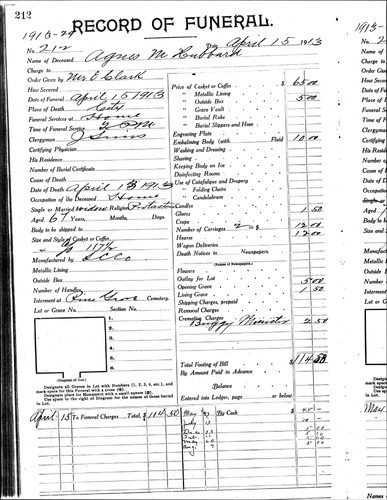 212
RECORD OF FUNERAL.
1913-29
No. 212 Date April 15 1913
Name of Deceased Agnes M Hubbard
Charge to
Order Given by Mrs E Clark
How Secured
Date of Funeral April 15 1913
Place of Death City
Funeral Services at Home
Time of Funeral Service
Clergyman J Sims
Certifying Physician
His Residence
Number of Burial Certificate
Cause of Death
Date of Death April 13 1913
Occupation of the Deceased Home
Single or Married widow Religion Protestant
Aged 67 Years, Months, Days.
Body to be shipped to
Size and Style of Casket or Coffin
Manufactured by
Metallic Lining
Outside Box
Number of Handles
Interment at Pine Grove Cemetery.
Lot or Grave No. Section No.
1.
2.
3.
4.
5.
6.
(Diagram of Lot.)
Designate all Graves in Lot with Numbers (1, 2, 3, 4, etc.), and
mark space for this Funeral with a cross
Designate place for Monument with a small square
Use space to the right of Diagram for the names of those buried
in Lot.
Price of Casket or Coffin $ 65 00
" Metallic Lining
" Outside Box 5 00
" Grave Vault
" Burial Robe
" Burial Slippers and Hose
Engraving Plate
Embalming Body (with Fluid 10 00
Washing and Dressing
Shaving
Keeping Body on Ice
Disinfecting Rooms
Use of Catafalque and Drapery
" Folding Chairs
" Candelabrum
Candles
Gloves 1 50
Crape
Number of Carriages 2 12 00
Hearse 12 00
Wagon Deliveries
Death Notices in Newspapers.
(Names of Newspapers)
Flowers
Outlay for Lot
Opening Grave 5 00
Lining Grave 1 50
Shipping Charges, prepaid
Removal Charges
Cremating Charges
Buggy Minister 2 50
Total Footing of Bill $ 114 50
By Amount Paid in Advance
Balance
Entered into Ledger, page or below.
April 15 To Funeral Charges Total, $ 114 50
May By Cash $
July
Dec
May
Aug
1913-
No.
Name of
Charge t
Order Gi
How Sec
Date of F
Place of
Funeral
Time of
Clergym
Certifyin
His Resi
Number
Cause of
Date of
Occupat
Single o
Aged
Body to
Size and
Manufac
Metallic
Outside
Number
Interme
Lot or G
Desi
mark sp
Desi
Use s
in Lot.
May
Names